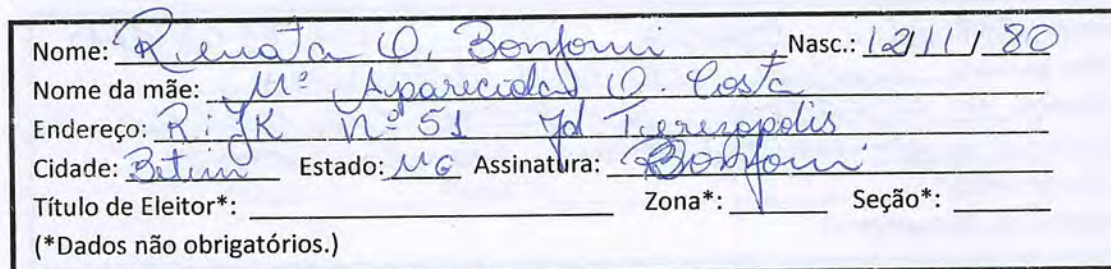 Nome: Renata O. Bonfomi Nasc.: 12/11/80
Nome da mãe: Mª Aparecida O. Costa
Endereço: R: JK Nº 51 Jd Terezopolis
Cidade: Betim Estado: MG Assinatura: Bonfomi
Título de Eleitor*: Zona*: Seção*:
(*Dados não obrigatórios.)